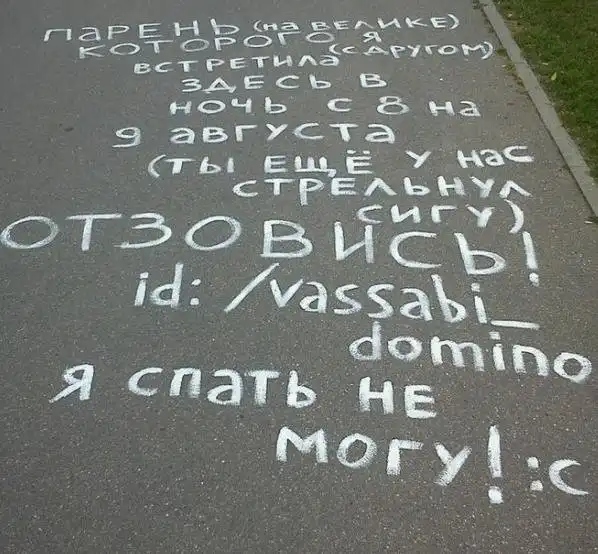 ПАРЕНЬ (НА ВЕЛИКЕ)
КОТОРОГО Я
(С ДРУГОМ)
ВСТРЕТИЛА
ЗДЕСЬ В
НОЧЬ С 8 НА
9 АВГУСТА
(ТЫ ЕЩЁ У НАС
СТРЕЛЬНУЛ
СИГУ)
ОТЗОВИСЬ!
id: /vassabi_
domino
Я СПАТЬ НЕ
МОГУ! :c